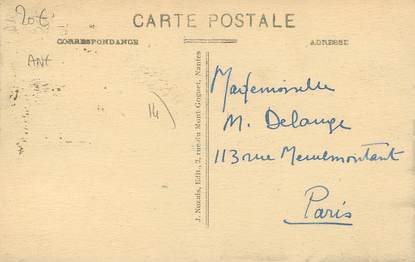 20€
CARTE POSTALE
CORRESPONDANCE
ADRESSE
ANF
14)
J. Nozais, Edit., 2, rue du Mont-Goguet, Nantes
Mademoiselle
M. Delange
113 rue Menilmontant
Paris